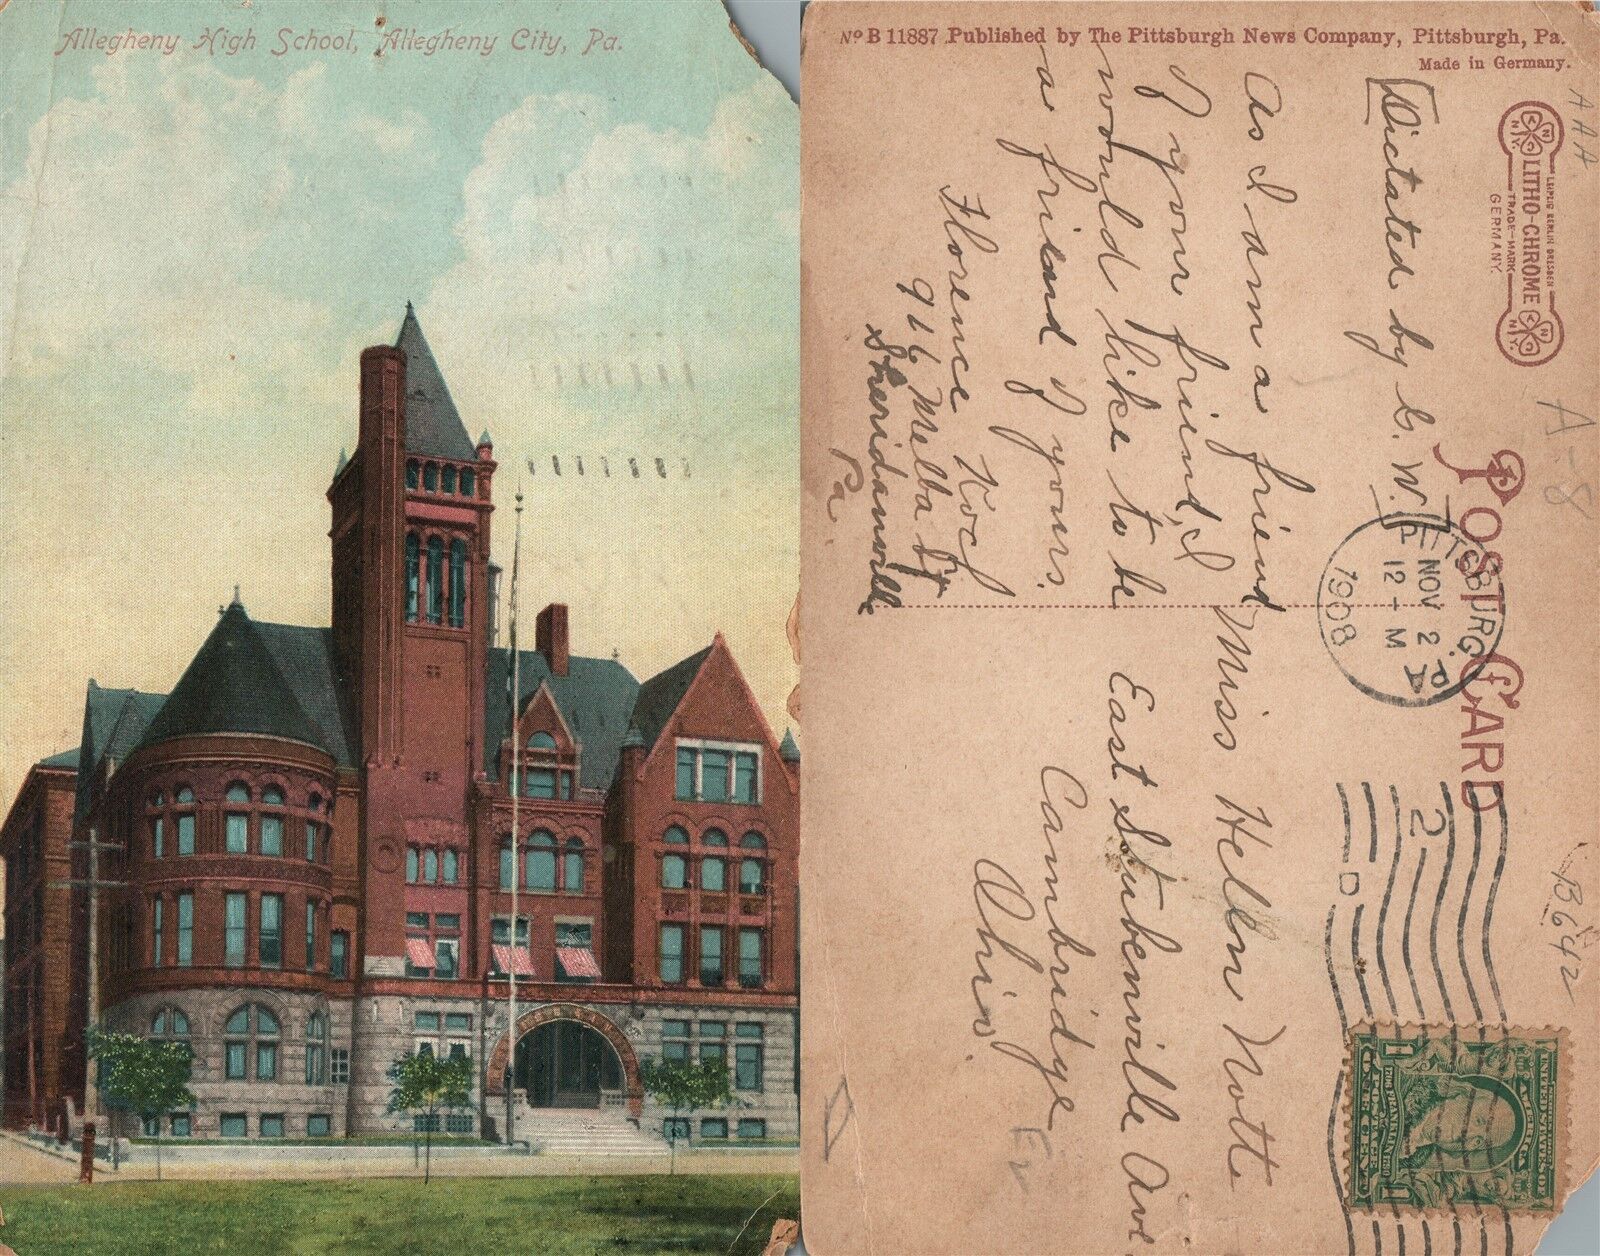 Allegheny High School, Allegheny City, Pa.
No B 11887 Published by The Pittsburgh News Company, Pittsburgh, Pa.
Made in Germany.
AAA
LEIPZIG BERLIN DRESDEN
LITHO-CHROME
TRADE-MARK
GERMANY.
N.Y.
N.Y.
A-8
POST CARD
B642
[Dictated by C. W.]
As I am a friend
of your friend, I
would like to be
a friend of yours.
Florence Koch
916 Melba St
Sheridanville
Pa.
PITTSBURG PA
NOV 2
12 - M
1908
2
D
Miss Hellen Notte
East Stubenville Ave
Cambridge
Ohio.